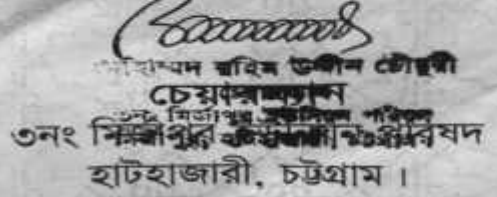 রহিম উদ্দীন চৌধুরী
চেয়ারম্যান
৩নং মির্জাপুর ইউনিয়ন পরিষদ
হাটহাজারী, চট্টগ্রাম ।